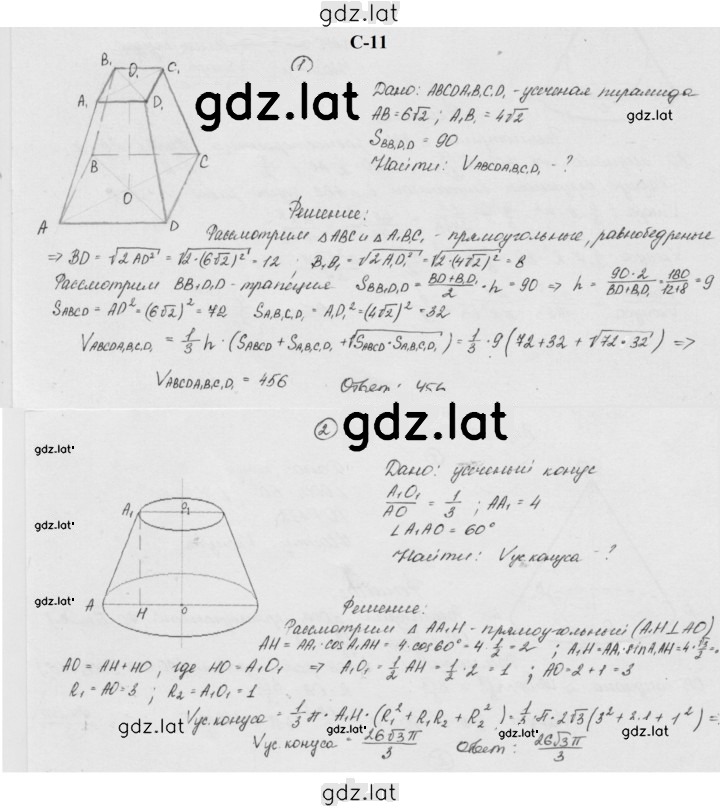 gdz.lat
С-11
gdz.lat
gdz.lat
B₁ O₁ C₁ A₁ D₁ B C O A D
①
Дано: ABCDA₁B₁C₁D₁ - усеченая пирамида
AB = 6√2 ; A₁B₁ = 4√2
S_BB₁D₁D = 90
Найти: V_ABCDA₁B₁C₁D₁ - ?
Решение:
Рассмотрим △ABC и △A₁B₁C₁ - прямоугольные, равнобедреные
=> BD = √2AD² = √2·(6√2)² = 12 ; B₁D₁ = √2A₁D₁² = √2·(4√2)² = 8
Рассмотрим BB₁D₁D - трапеция S_BB₁D₁D = (BD+B₁D₁)/2 · h = 90 => h = 90·2/(BD+B₁D₁) = 180/(12+8) = 9
S_ABCD = AD² = (6√2)² = 72 S_A₁B₁C₁D₁ = A₁D₁² = (4√2)² = 32
V_ABCDA₁B₁C₁D₁ = 1/3 h · (S_ABCD + S_A₁B₁C₁D₁ + √S_ABCD · S_A₁B₁C₁D₁) = 1/3 · 9 (72 + 32 + √72·32) =>
V_ABCDA₁B₁C₁D₁ = 456 Ответ: 456
gdz.lat
②
gdz.lat
gdz.lat
gdz.lat
A₁ O₁ A H O
Дано: усеченый конус
A₁O₁/AO = 1/3 ; AA₁ = 4
∠A₁AO = 60°
Найти: Vус.конуса - ?
gdz.lat
Решение:
Рассмотрим △AA₁H - прямоугольный (A₁H ⊥ AO)
AH = AA₁·cosA₁AH = 4·cos60° = 4·1/2 = 2 ; A₁H = AA₁·sinA₁AH = 4·√3/2 =
AO = AH + HO, где HO = A₁O₁ => A₁O₁ = 1/2 AH = 1/2 · 2 = 1 ; AO = 2+1 = 3
R₁ = AO = 3 ; R₂ = A₁O₁ = 1
Vус.конуса = 1/3 π · A₁H · (R₁² + R₁R₂ + R₂²) = 1/3 · π · 2√3 (3² + 3·1 + 1²) =
gdz.lat
gdz.lat
gdz.lat
Vус.конуса = 26√3π/3 Ответ: 26√3π/3
gdz.lat